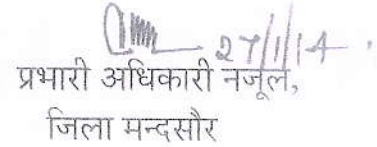 27/1/14
प्रभारी अधिकारी नजूल,
जिला मन्दसौर